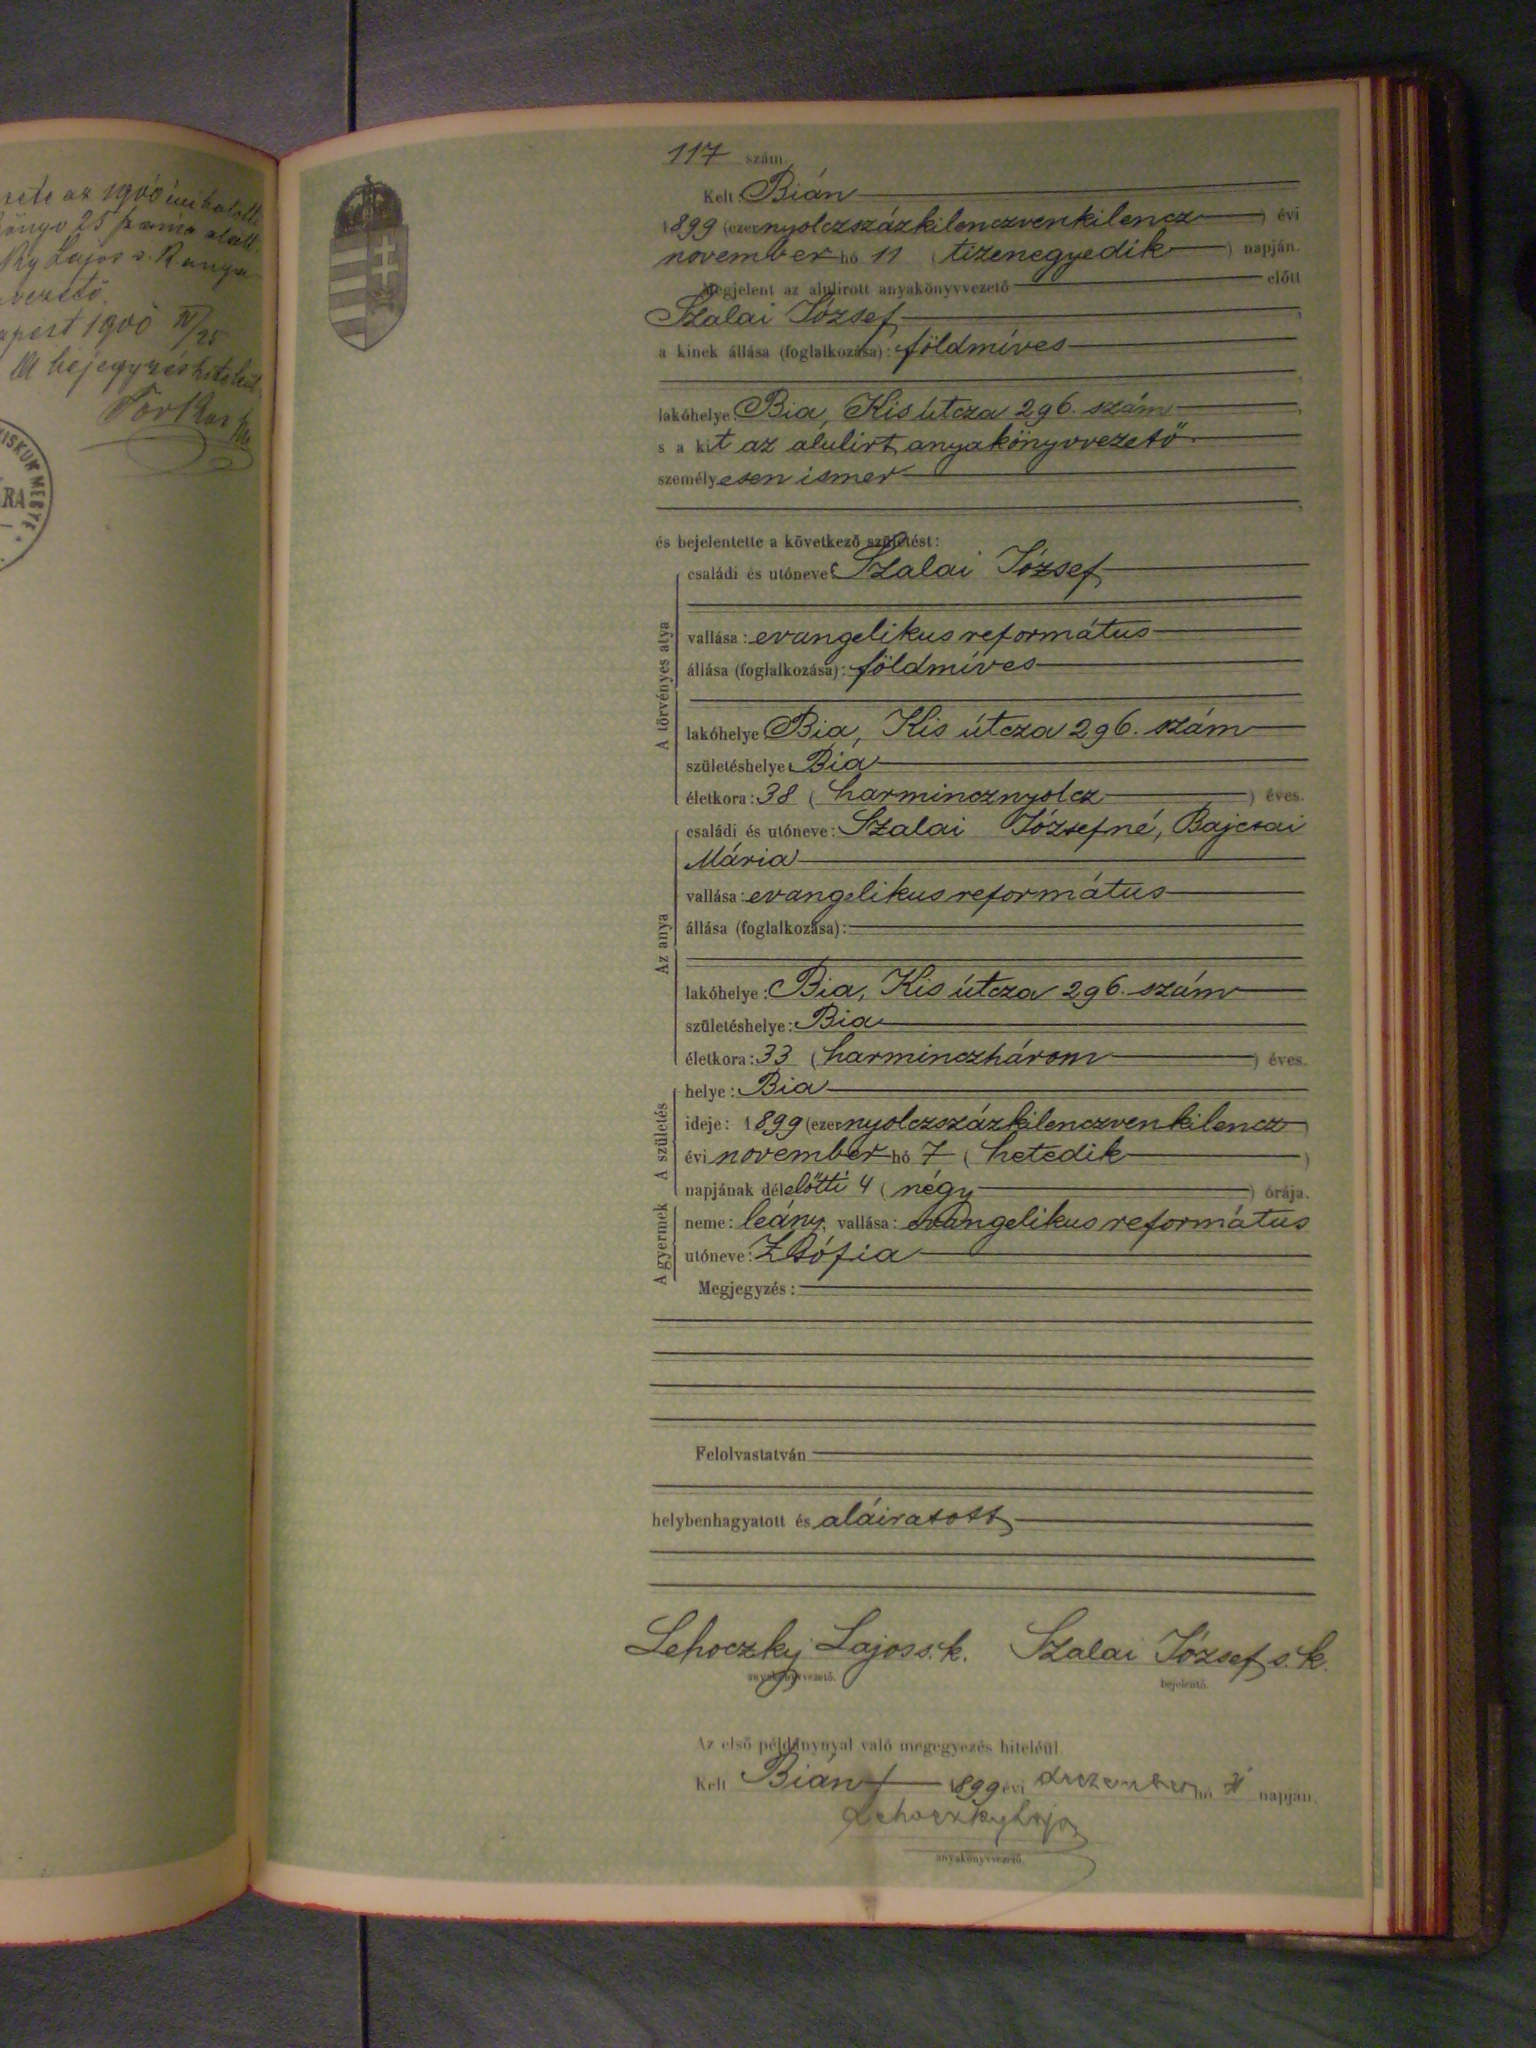 az 1900
25 alatt.
Lajos s. k. anya
vezető.
1900 IV/25
A bejegyzés hiteleül
ZISKUN MEGYE
117 szám.
Kelt Bián
1899 (ezernyolczszázkilenczvenkilencz) évi
november hó 11 (tizenegyedik) napján.
Megjelent az alulírott anyakönyvvezető előtt
Szalai József
a kinek állása (foglalkozása): földmíves
lakóhelye: Bia, Kis útcza 296. szám
s a kit az alulirt anyakönyvvezető
személyesen ismer
és bejelentette a következő születést:
A törvényes atya
családi és utóneve: Szalai József
vallása: evangelikus református
állása (foglalkozása): földmíves
lakóhelye Bia, Kis útcza 296. szám
születéshelye Bia
életkora: 38 (harmincznyolcz) éves.
Az anya
családi és utóneve: Szalai Józsefné, Bajcsai
Mária
vallása: evangelikus református
állása (foglalkozása):
lakóhelye: Bia, Kis útcza 296. szám
születéshelye: Bia
életkora: 33 (harminczhárom) éves.
A születés
helye: Bia
ideje: 1899 (ezernyolczszázkilenczvenkilencz)
évi november hó 7 (hetedik)
napjának délelőtti 4 (négy) órája.
A gyermek
neme: leány, vallása: evangelikus református
utóneve: Zsófia
Megjegyzés:
Felolvastatván
helybenhagyatott és aláiratott
Lehoczky Lajos s. k. Szalai József s. k.
anyakönyvvezető. bejelentő.
Az első példánynyal való megegyezés hiteléül
Kelt Bián 1899 évi deczember hó 31 napján.
Lehoczky Lajos
anyakönyvvezető.